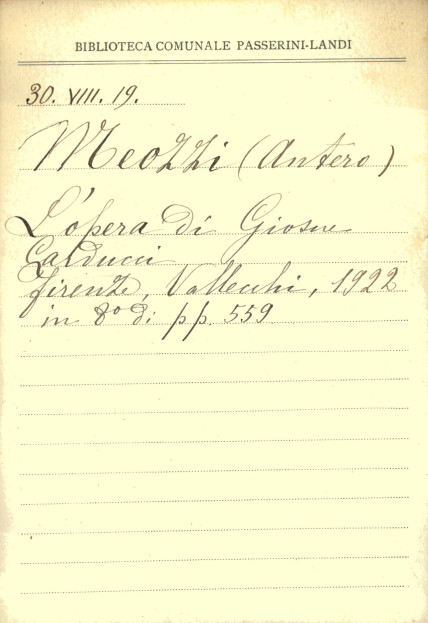 BIBLIOTECA COMUNALE PASSERINI-LANDI
30. VIII. 19.
Meozzi (Antero)
L'opera di Giosue
Carducci
Firenze, Vallecchi, 1922
in 8º di pp. 559